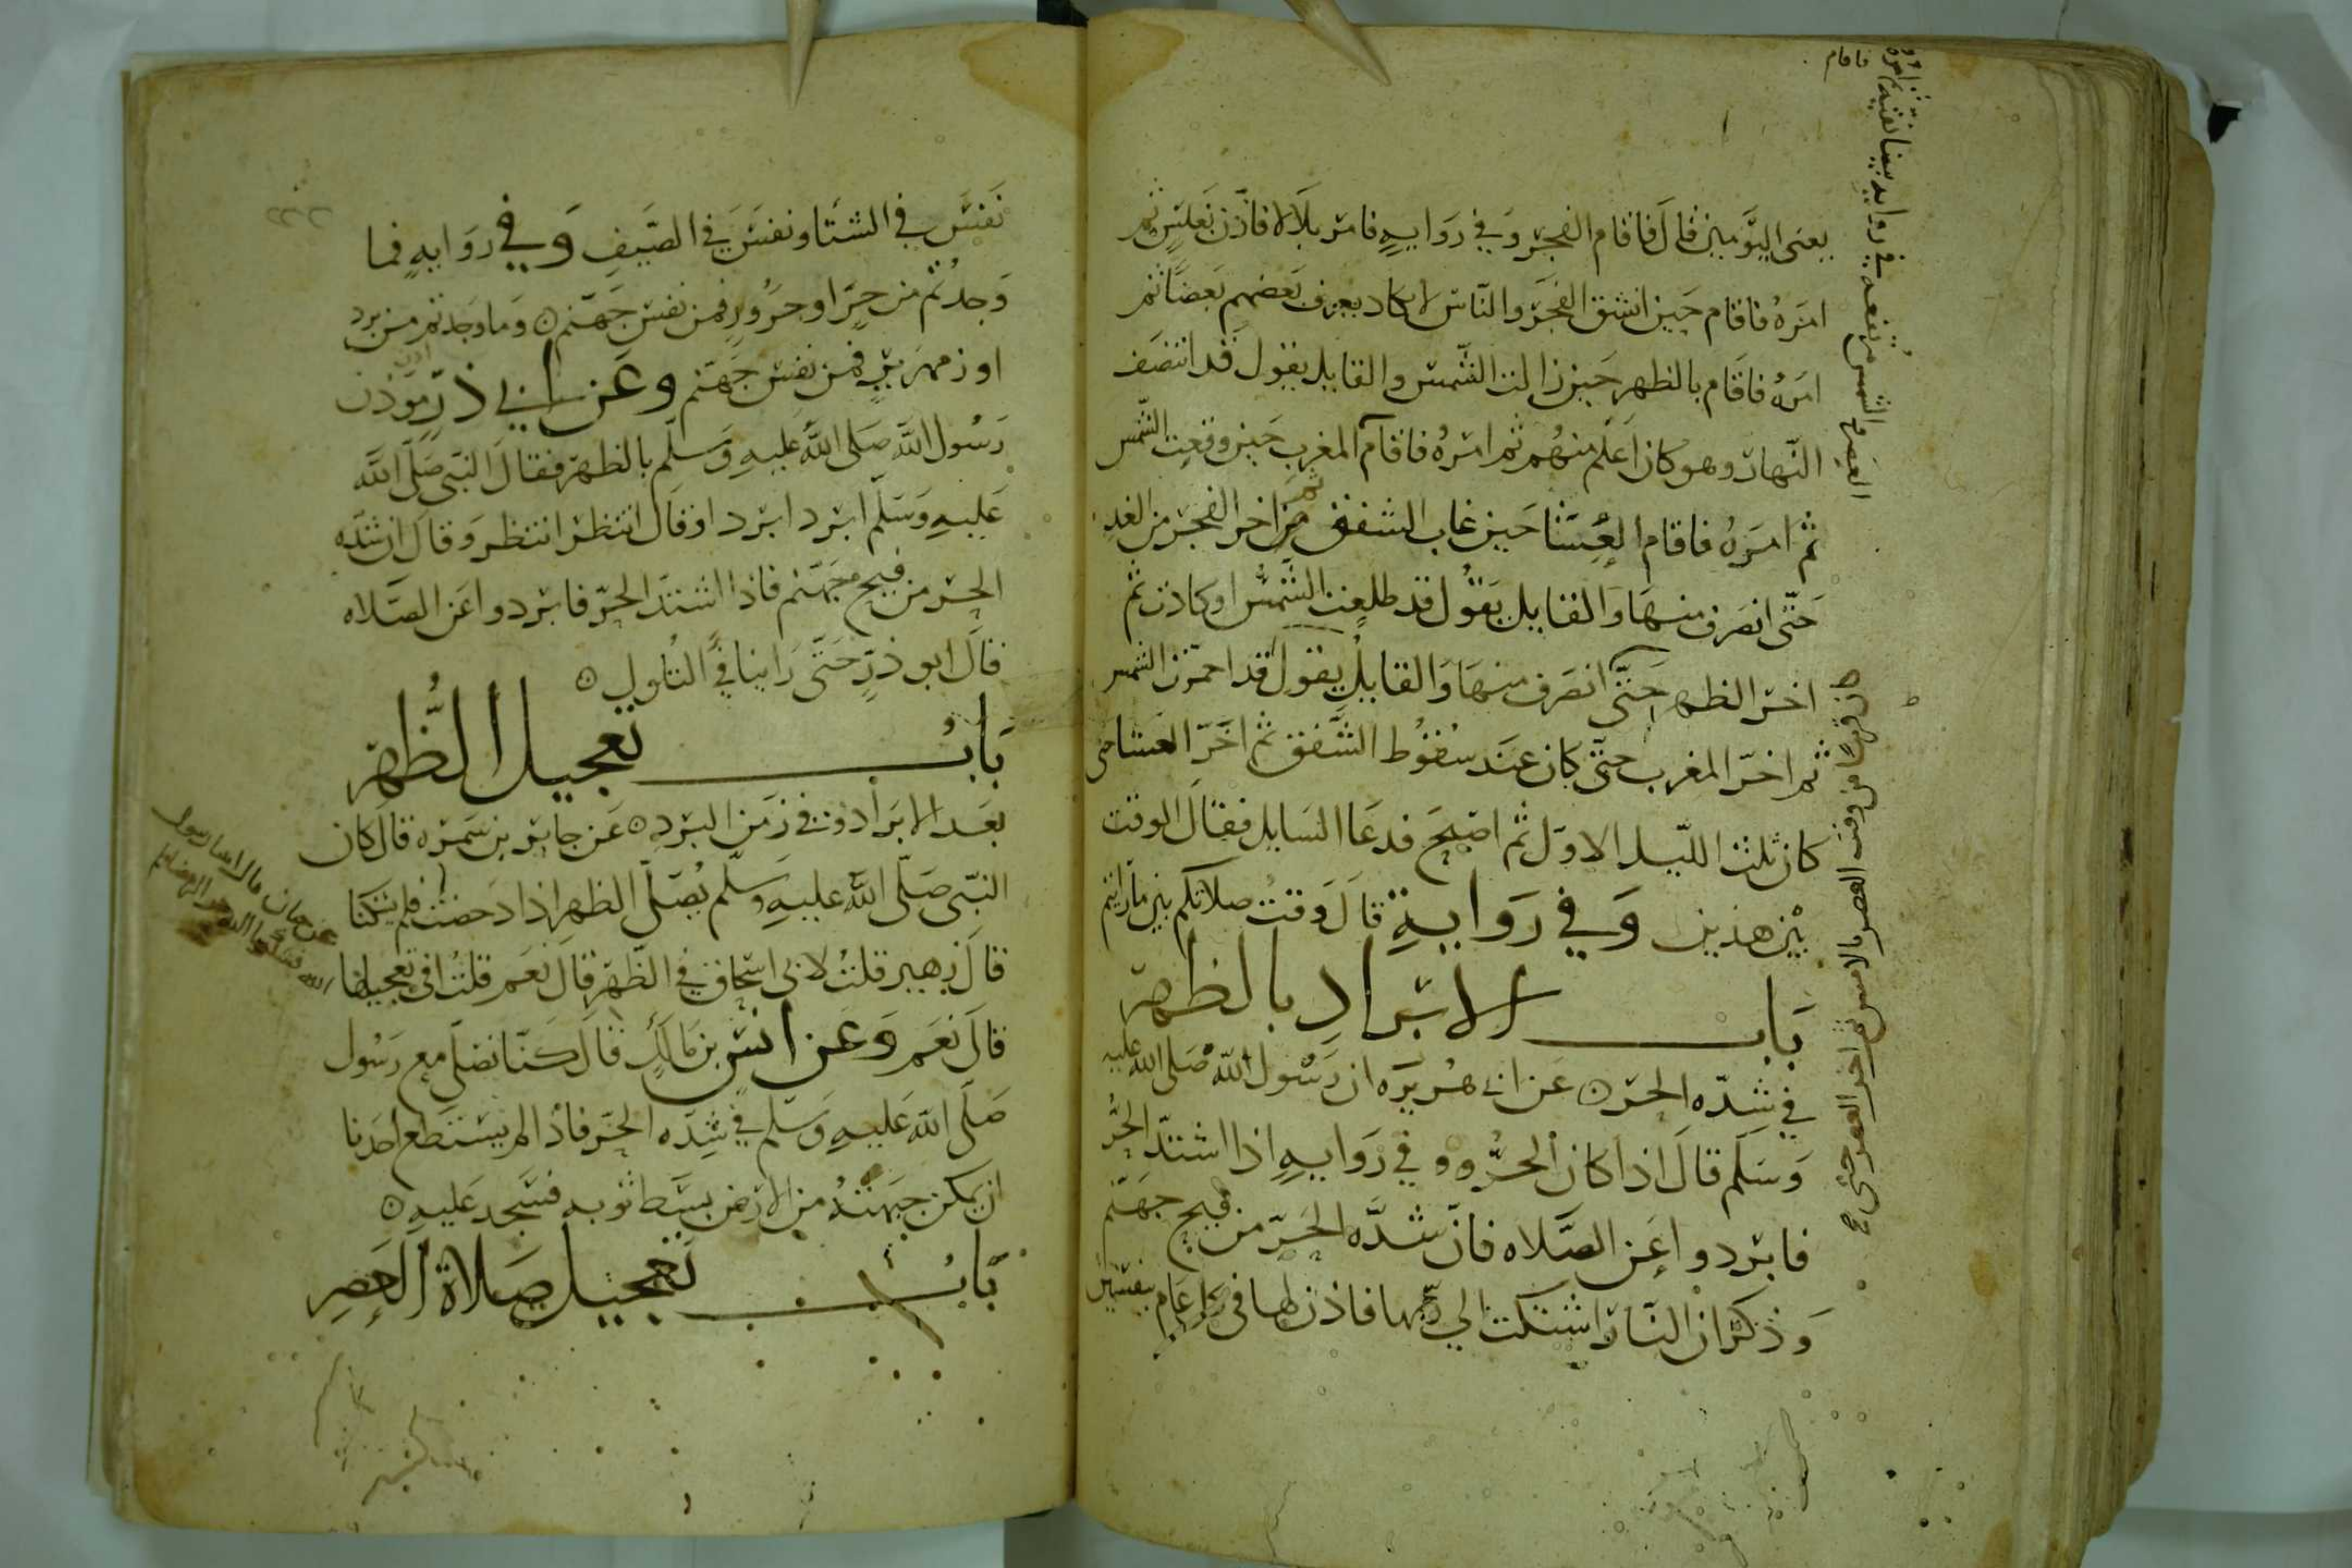 يعنى اليومين قال فاقام الفجر وفي رواية فامر بلالا فاذن بغلس ثم
امره فاقام حين انشق الفجر والناس لا يكاد يعرف بعضهم بعضا ثم
امره فاقام بالظهر حين زالت الشمس والقايل يقول قد انتصف
النهار وهو كان اعلم منهم ثم امره فاقام المغرب حين وقعت الشمس
ثم امره فاقام العشا حين غاب الشفق ثم اخر الفجر من الغد
حتى انصرف منها والقايل يقول قد طلعت الشمس او كادت ثم
اخر الظهر حتى انصرف منها والقايل يقول قد احمرت الشمس
ثم اخر المغرب حتى كان عند سقوط الشفق ثم اخر العشا حتى
كان ثلث الليل الاول ثم اصبح فدعا السايل فقال الوقت
بين هذين وفي رواية قال وقت صلاتكم بين ما رايتم
باب الابراد بالظهر
في شده الحر عن ابي هريره ان رسول الله صلى الله عليه
وسلم قال اذا كان الحر وفي رواية اذا اشتد الحر
فابردوا عن الصلاه فان شده الحر من فيح جهنم
وذكر ان النار اشتكت الي ربها فاذن لها في كل عام بنفسين
ثم امره فاقام
العصر والشمس مرتفعه في رواية بيضا نقيه
كان قريبا من وقت العصر بالامس ثم اخر العصر حتى
نفس في الشتا ونفس في الصيف وفي رواية فما
وجدتم من حر او حرور فمن نفس جهنم وما وجدتم من برد
او زمهرير فمن نفس جهنم وعن ابي ذر اذن موذن
رسول الله صلى الله عليه وسلم بالظهر فقال النبي صلى الله
عليه وسلم ابرد ابرد او قال انتظر انتظر وقال ان شده
الحر من فيح جهنم فاذا اشتد الحر فابردوا عن الصلاه
قال ابو ذر حتى راينا في التلول
باب تعجيل الظهر
بعد الابراد وفي زمن البرد عن جابر بن سمره قال كان
النبي صلى الله عليه وسلم يصلي الظهر اذا دحضت فلم يشكنا
قال زهير قلت لابي اسحاق في الظهر قال نعم قلت افي تعجيلها
قال نعم وعن انس بن مالك قال كنا نصلي مع رسول
صلى الله عليه وسلم في شده الحر فاذا لم يستطع احدنا
ان يمكن جبهته من الارض بسط ثوبه فسجد عليه
باب تعجيل صلاة العصر